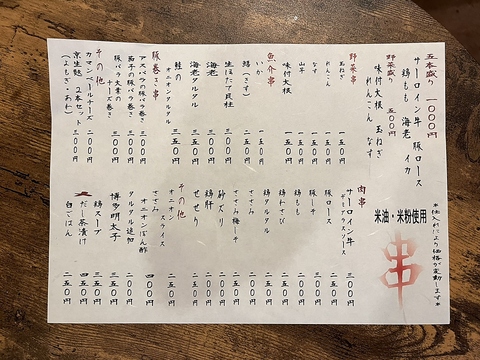 ＊仕入れにより価格が変動します＊
米油・米粉使用
串
五本盛り 一〇〇〇円
サーロイン牛 豚ロース
鶏もも 海老 イカ
野菜盛り 五〇〇円
味付大根 玉ねぎ
れんこん なす
野菜串
玉ねぎ 一五〇円
れんこん 一五〇円
なす 一五〇円
山芋 一五〇円
味付大根 一五〇円
魚介串
いか 一五〇円
鱚(きす) 二五〇円
生ほたて貝柱 三〇〇円
海老 三〇〇円
海老タルタル 三五〇円
鮭の
オニオンタルタル 三五〇円
豚巻き串
アスパラの豚バラ巻き 三〇〇円
茄子の豚バラ巻き 三〇〇円
豚バラ大葉の
チーズ巻き 三〇〇円
その他
カマンベールチーズ 二〇〇円
京生麩 2本セット 三〇〇円
(よもぎ・あわ)
肉串
サーロイン牛 三〇〇円
豚ロース 二五〇円
豚しそ 二五〇円
鶏もも
鶏わさび 二五〇円
鶏タルタル 二五〇円
ささみ 二〇〇円
ささみ梅しそ 二五〇円
砂ズリ 二〇〇円
鶏肝 二〇〇円
せせり 二五〇円
その他
オニオン
スライス 二五〇円
ささみ
オニオンぽん酢 四〇〇円
タルタル追加 二〇〇円
博多明太子 三五〇円
鶏スープ 二五〇円
だし茶漬け 四五〇円
白ごはん 二五〇円